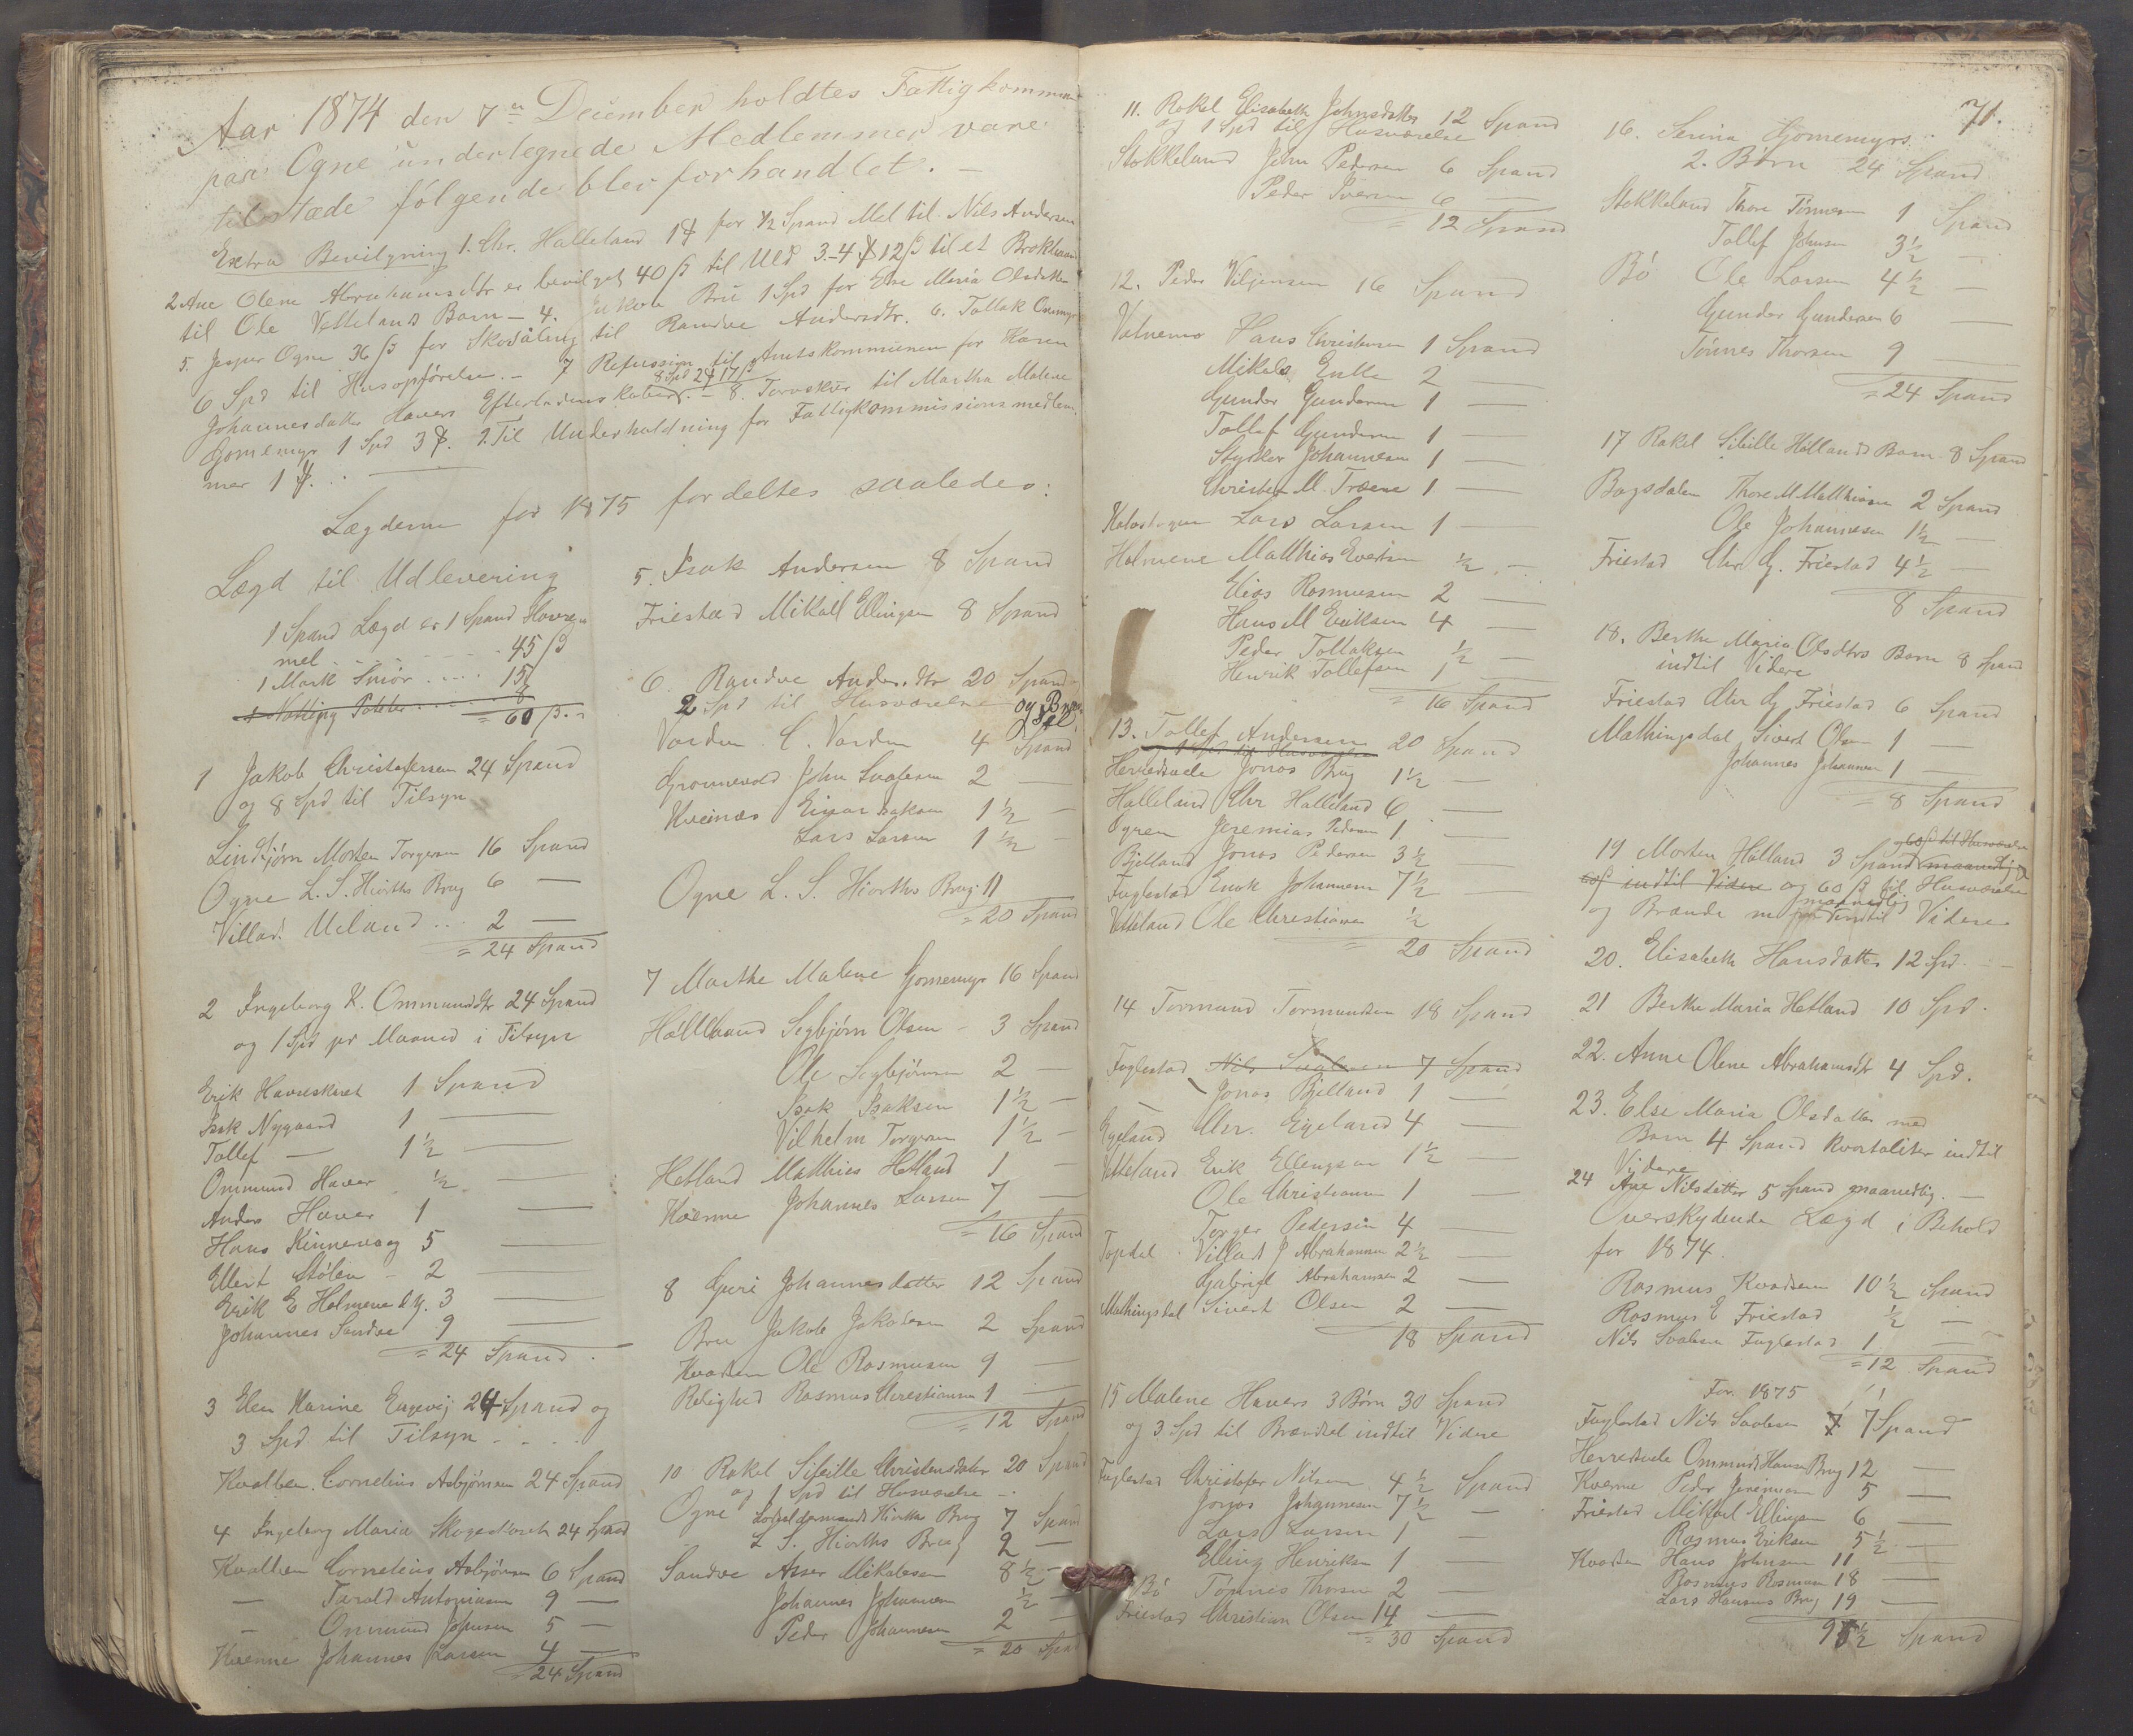 Aar 1874 den 7de December holdtes Fattigkommission
paa Ogne undertegnede Medlemmer vare
tilstæde følgende blev forhandlet. —
Extra Bevilgning 1. Chr. Halleland 1 ₰ for ½ Spand Mel til Nils Andersen
2 Ane Olene Abrahamsdtr er bevilget 40 ß til Uld 3. -4 ₰ 12 ß til et
til Ole Vetteland Barn — 4. Jakob Bru 1 Spd for Else Maria Olsdatter
5. Jesper Ogne 36 ß for Skosåling til Randve Andersdtr. 6. Tollak
6 Spd til Husopførelse. — 7 Refussion til Amtskommunen for Karen
8 Spd 2 ₰ 17 ß
Johannesdatter Havers Efterladenskaber. — 8. Torvskur til Martha Malene
Gomemyr 1 Spd 3 ₰. 9. Til Underholdning for Fattigkommissions medlem-
mer 1 ₰.
Lægderne for 1875 fordeltes saaledes:
Lægd til Udlevering
1 Spand Lægd er 1 Spand Havre-
mel . . . . . 45 ß
1 Mark Smør . . . . 15
8
= 60 ß. -
1 Jakob Christofersen 24 Spand
og 8 Spd til Tilsyn
Lindtjørn Morten Torgersen 16 Spand
Ogne L. S. Hiorths Brug 6 —
Villads Ueland . . 2 —
= 24 Spand
2 Ingeborg K. Ommundsdtr 24 Spand
og 1 Spd pr Maaned i Tilsyn
Erik Havreskaret 1 Spand
Isak Nygaard 1 —
Tollef — 1½ —
Ommund Haver ½ —
Anders Haver 1 —
Hans Kinnevaag 5 —
Ellert Stølen - 2 —
Erik E Holmene d.y. 3 —
Johannes Sandve 9 —
= 24 Spand
3 Elen Karine Engevej 24 Spand og
3 Spd til Tilsyn . . . .
Kvalben Cornelius Asbjørnsen 24 Spand
4 Ingeborg Maria 24 Spand
Kvalben Cornelius Asbjørnsen 6 Spand
— Tarald Antoniusen 9 —
— Ommund Johnsen 5 —
Kvenne Johannes Larsen 4 —
= 24 Spand
5. Isak Andersen 8 Spand
Friestad Mikall Ellingsen 8 Spand
6. Randve Andersdtr 20 Spand
2 Spd til Husværelse og
Varden C. Varden 4 Spand
John 2 —
Kveinæs Einar Isaksen 1½ —
Lars Larsen 1½
Ogne L. S. Hiorths Brug. 11
= 20 Spand
7 Marthe Malene Gomemyr 16 Spand
Hølland Segbjørn Olsen - 3 Spand
Ole Segbjørnsen 2 —
Isak Isaksen 1½ —
Vilhelm Torgersen 1½ —
Hetland Matthias Hetland 1 —
Kvenne Johannes Larsen 7 —
= 16 Spand
8 Guri Johannesdatter 12 Spand
Bru Jakob Jakobsen 2 Spand
Kvassen Ole Rasmusen 9 —
Rolighed Rasmus Christiansen 1 —
= 12 Spand
10 Rakel Sibille Christensdatter 20 Spand
og 1 Spd til Husværelse -.
Ogne Hiorths Brug 7 Spand
L. S. Hiorths Brug 2 —
Sandve Asser Mikalesen 8½ —
Johannes Johannesen ½ —
Peder Johannesen 2 —
= 20 Spand
71.
11. Rakel Elisabeth Johnsdatter 12 Spand
og 1 Spd til Husværelse
Stokkeland John Pedersen 6 Spand
Peder Iversen 6 —
= 12 Spand
12. Peder Viljemsen 16 Spand
Valnemo Hans Christensen 1 Spand
Mikals Enke 2 —
Gunder Gundersen 1 —
Tollef Gundersen 1 —
Styrker Johannesen 1 —
Christen M. Træene 1 —
Lars Larsen 1 —
Holmene Matthias Evertsen ½ —
Elias Rasmusen 2 —
Hans M Eriksen 4 —
Peder Tollaksen ½ —
Henrik Tollefsen 1 —
= 16 Spand
13. Tollef Andersen 20 Spand
og 1 Spd til Husværelse
Herredsvela Jonas Brug 1½ —
Halleland Chr Halleland 6 —
Ogren Jeremias Pedersen 1 —
Bjelland Jonas Pedersen 3½ —
Fuglestad Enok Johannesen 7½ —
Vetteland Ole Christiansen ½
= 20 Spand
14 Tormund Tormundsen 18 Spand
Fuglestad Nils Svalesen 7 Spand
Jonas Bjelland 1 —
Egeland Chr. Egeland 4 —
Vetteland Erik Ellingsen 1½ —
Ole Christiansen 1 —
Torger Pedersen 4 —
Topdal Villads J Abrahamsen 2½ —
Gabriel Abrahamsen 2 —
Mathingsdal Sivert Olsen 2 —
18 Spand
15 Malene Havers 3 Børn 30 Spand
og 3 Spd til Brændsel indtil Videre
Fuglestad Christofer Nilsen 4½ Spand
Jonas Johannesen 7½ —
Lars Larsen 1 —
Elling Henriksen 1 —
Bø Tønnes Thorsen 2 —
Friestad Christian Olsen 14 —
= 30 Spand
16. Serina Gjomemyrs
2. Børn 24 Spand
Stokkeland Thore Tønnesen 1 Spand
Tollef Johnsen 3½ —
Bø Ole Larsen 4½ —
Gunder Gundersen 6 —
Tønnes Thorsen 9 —
= 24 Spand
17 Rakel Sibille Høllands Barn 8 Spand
Bøgsdalen Thore M. Matthiasen 2 Spand
Ole Johannesen 1½ —
Friestad Chr G. Friestad 4½ —
8 Spand
18. Berthe Maria Olsdtrs Barn 8 Spand
indtil Videre
Friestad Chr G Friestad 6 Spand
Mathingsdal Sivert Olsen 1 —
Johannes Johannesen 1 —
= 8 Spand
19 Morten Hølland 3 Spand maanedlig
60 ß indtil Videre og 60 ß til Husværelse
maanedlig
og Brænde indtil Videre
20. Elisabeth Hansdatter 12 Spd. -
21 Berthe Maria Hetland 10 Spd.
22. Anne Olene Abrahamsdtr 4 Spd.
23. Else Maria Olsdatter med
Barn 4 Spand kvartaliter indtil
Videre
24 Ane Nilsdatter 5 Spand maanedlig. —
Overskydende Lægd i Behold
for 1874.
Rasmus Kvassen 10½ Spand
Rasmus E Friestad ½ —
Nils Svalesen Fuglestad 1 —
= 12 Spand
For 1875
Fuglestad Nils Svalesen 7 Spand
Herredsvela Ommund Hansen Brug 12 —
Kvenne Peder Jeremiasen 5 —
Friestad Mikael Ellingsen 6 —
Rasmus Eriksen 5½ —
Kvassen Hans Johnsen 11 —
Rasmus Rasmusen 18 —
Lars Hansens Brug 19 —
Spand